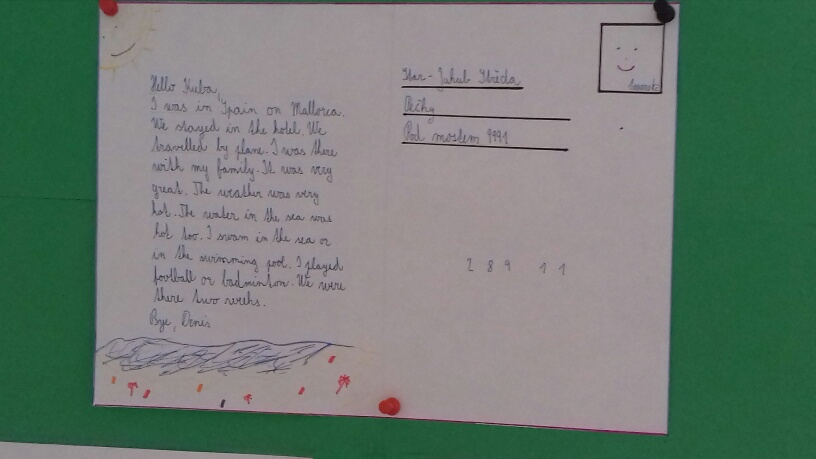 Hello Kuba,
I was in Spain on Mallorca.
We stayed in the hotel. We
travelled by plane. I was there
with my family. It was very
great. The weather was very
hot. The water in the sea was
hot too. I swam in the sea or
in the swimming pool. I played
football or badminton. We were
there two weeks.
Bye, Denis
Jakub
Pečky
Pod mostem 9991
289 11